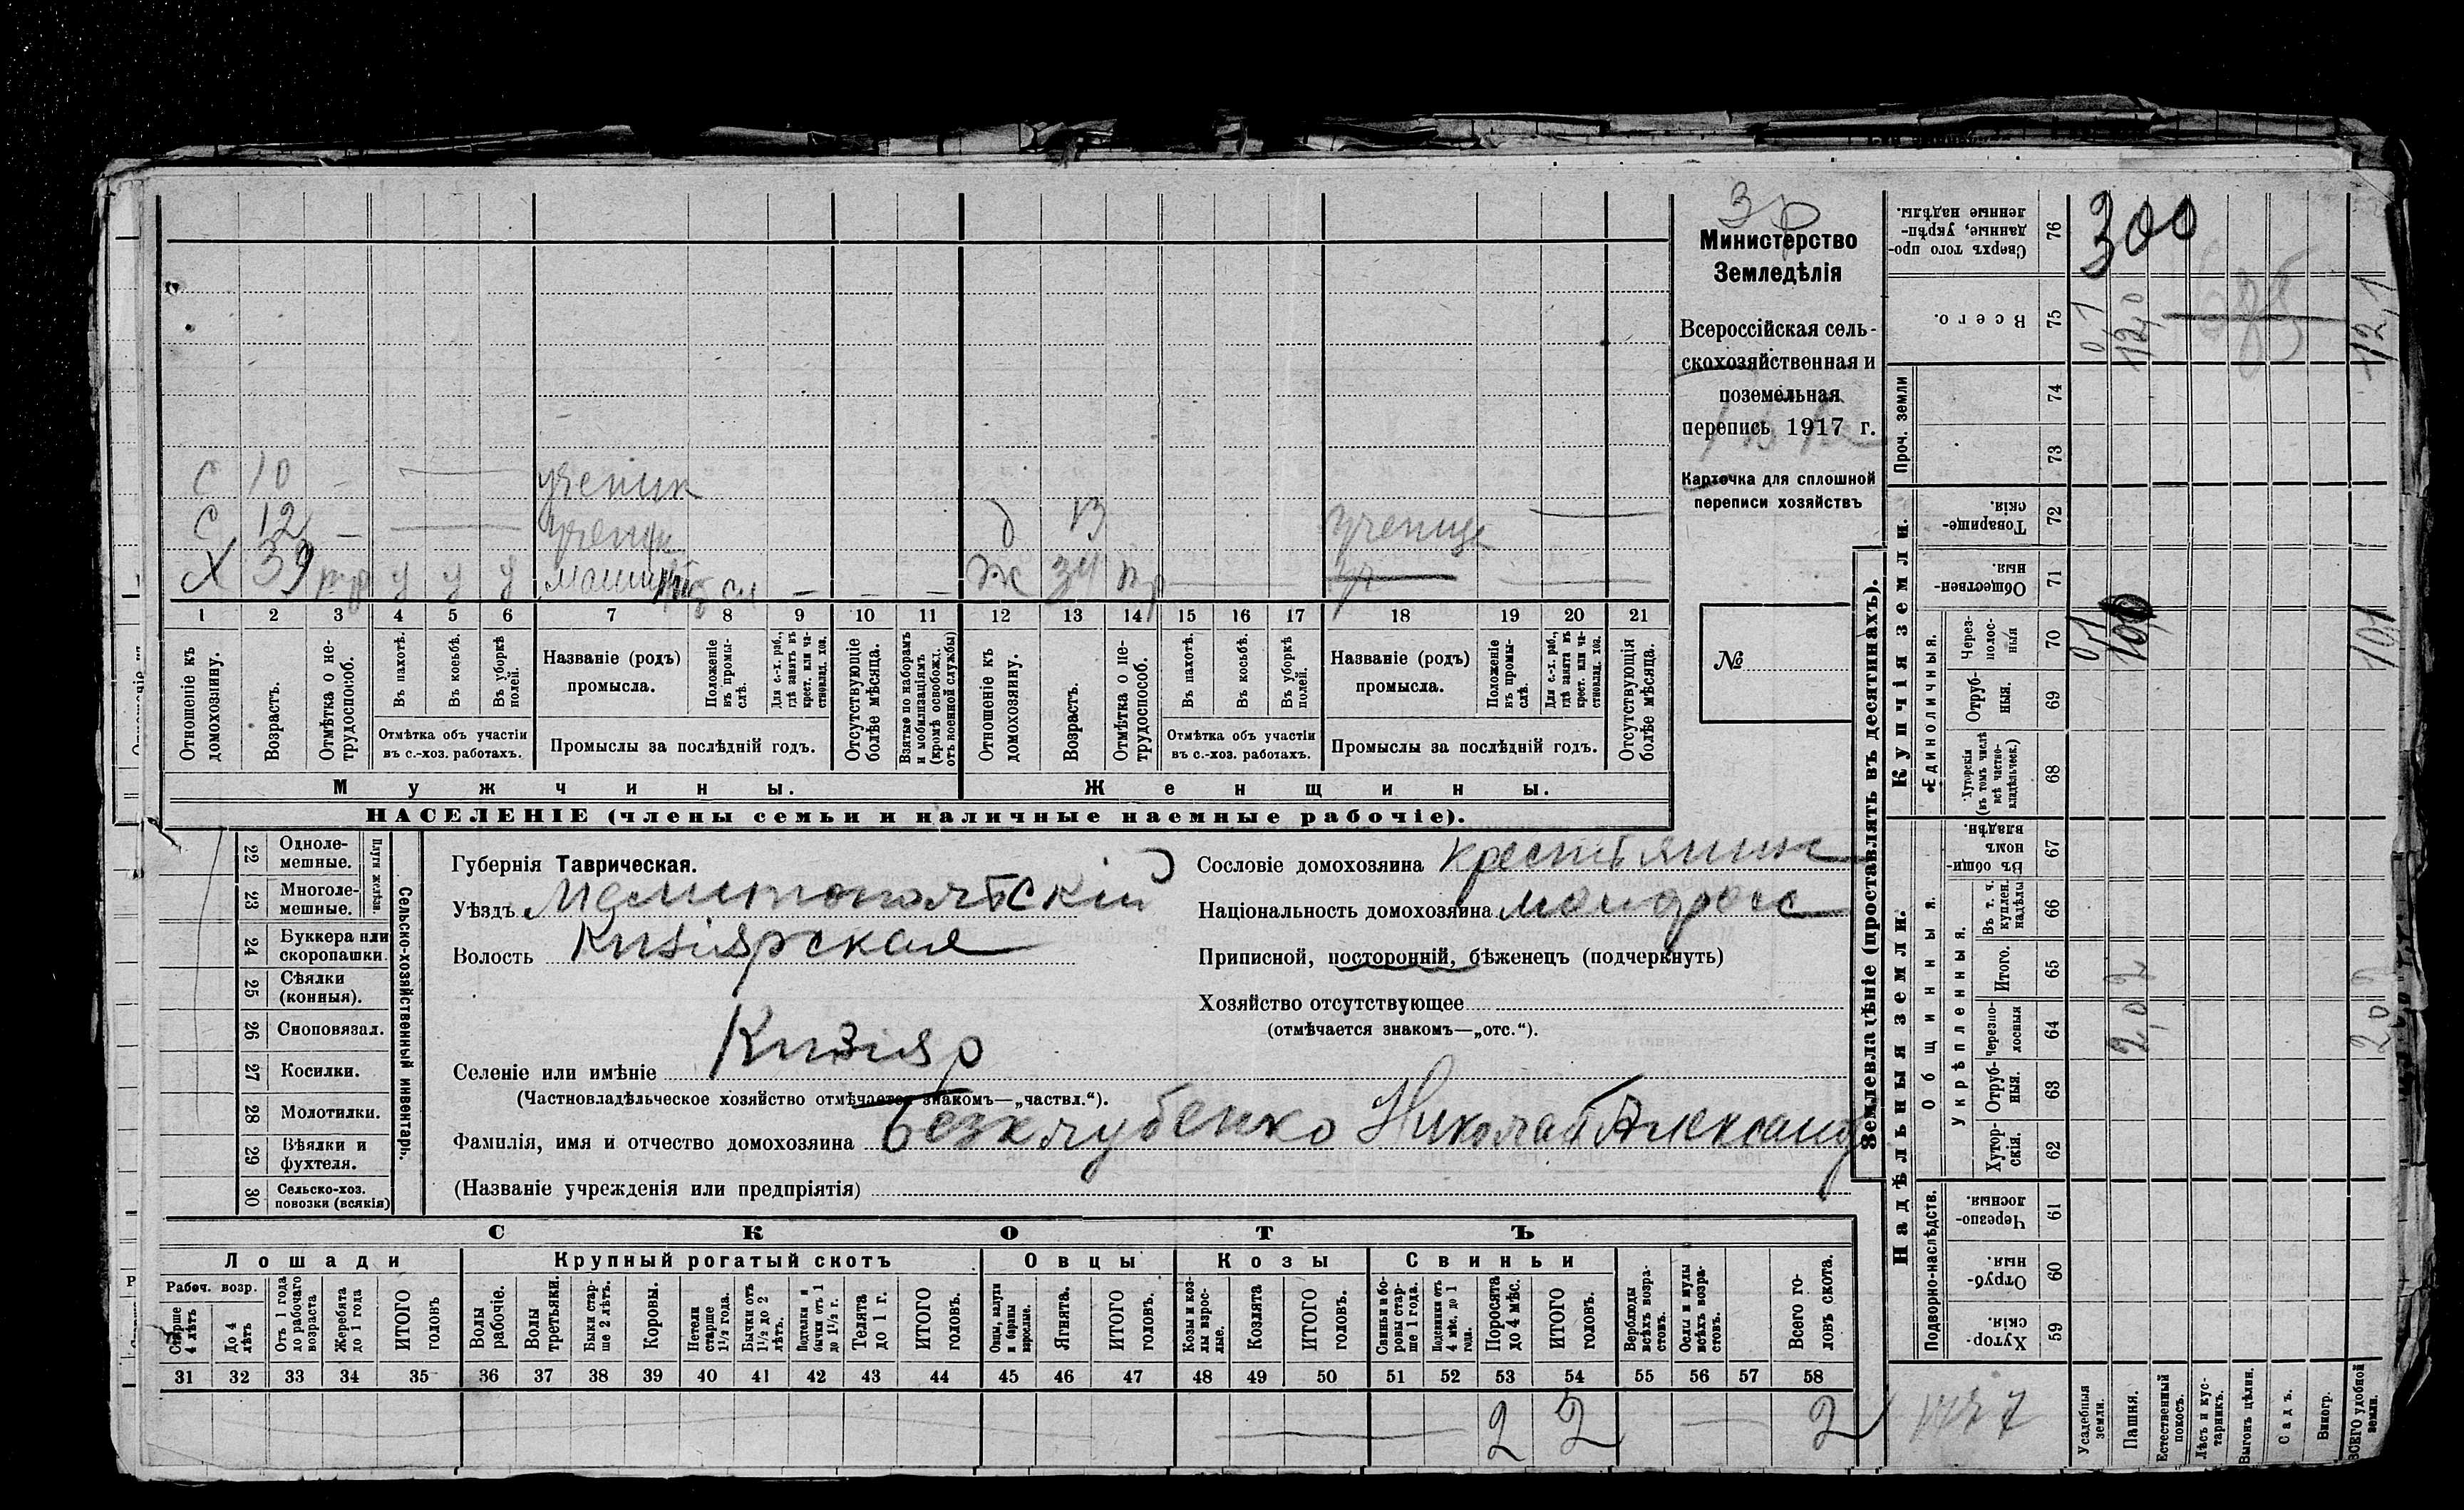 Зр
Министерство
Земледѣлія
Всероссійская сель-
скохозяйственная и
поземельная
перепись 1917 г.
Карточка для сплошной
переписи хозяйствъ
№
с 10 — — ученик
с 12 — — ученик д 13 ученица —
Х 39 пр у у у сл — — — ж 34 пр — —
1 2 3 4 5 6 7 8 9 10 11 12 13 14 15 16 17 18 19 20 21
Отношеніе къ домохозяину.
Возрастъ.
Отмѣтка о не-трудоспособ.
Въ пахотѣ.
Въ косьбѣ.
Въ уборкѣ полей.
Отмѣтка объ участіи
въ с.-хоз. работахъ.
Названіе (родъ)
промысла.
Положеніе въ промы-слѣ.
Для с.-х. раб., гдѣ занятъ въ крест. или ча-стновлад. хоз.
Промыслы за послѣдній годъ.
Отсутствующіе болѣе мѣсяца.
Взятые по наборамъ и мобилизаціямъ (кромѣ освобожд. отъ военной службы)
Отношеніе къ домохозяину.
Возрастъ.
Отмѣтка о не-трудоспособ.
Въ пахотѣ.
Въ косьбѣ.
Въ уборкѣ полей.
Отмѣтка объ участіи
въ с.-хоз. работахъ.
Названіе (родъ)
промысла.
Положеніе въ промы-слѣ.
Для с.-х. раб., гдѣ занята въ крест. или ча-стновлад. хоз.
Промыслы за послѣдній годъ.
Отсутствующія болѣе мѣсяца.
Мужчины. Женщины.
НАСЕЛЕНІЕ (члены семьи и наличные наемные рабочіе).
Сельско-хозяйственный инвентарь.
Плуги желѣзн.
22 Одноле-мешные.
23 Многоле-мешные.
24 Буккера или скоропашки.
25 Сѣялки (конныя).
26 Сноповязал.
27 Косилки.
28 Молотилки.
29 Вѣялки и фухтеля.
30 Сельско-хоз. повозки (всякія)
Губернія Таврическая.
Уѣздъ Мелитопольскій
Волость Кизіярская
Селеніе или имѣніе Кизияр
(Частновладѣльческое хозяйство отмѣчается знакомъ—„частвл.“).
Фамилія, имя и отчество домохозяина Безклубенко Николай Александ
(Названіе учрежденія или предпріятія)
Сословіе домохозяина крестьянин
Національность домохозяина малоросс
Приписной, посторонній, бѣженецъ (подчеркнуть)
Хозяйство отсутствующее
(отмѣчается знакомъ—„отс.“).
СКОТЪ
Лошади Крупный рогатый скотъ Овцы Козы Свиньи
Рабоч. возр.
Старше 4 лѣтъ
До 4 лѣтъ
Отъ 1 года до рабочаго возраста
Жеребята до 1 года
ИТОГО головъ
Волы рабочіе.
Волы третьяки.
Быки стар-ше 2 лѣтъ.
Коровы.
Нетели старше 1½ года.
Бычки отъ 1½ до 2 лѣтъ.
Подтелки и бычки отъ 1 до 1½ г.
Телята до 1 г.
ИТОГО головъ.
Овцы, валухи и бараны взрослые.
Ягнята.
ИТОГО головъ.
Козы и коз-лы взрос-лые.
Козлята
ИТОГО головъ.
Свиньи и бо-ровы стар-ше 1 года.
Подсвинки отъ 4 мѣс. до 1 года.
Поросята до 4 мѣс.
ИТОГО головъ.
Верблюды всѣхъ возра-стовъ.
Ослы и мулы всѣхъ возра-стовъ.
Всего го-ловъ скота.
31 32 33 34 35 36 37 38 39 40 41 42 43 44 45 46 47 48 49 50 51 52 53 54 55 56 57 58
2 2 — 2
Землевладѣніе (проставлять въ десятинахъ).
Надѣльныя земли. Купчія земли. Проч. земли
Подворно-наслѣдств.
Общинныя.
Укрѣпленныя.
Единоличныя.
76 Сверхъ того про-данные, укрѣп-ленные надѣлы. 300
75 Всего. 0,1 12,0 12,1
685
74
73
72 Товарище-скія.
71 Обществен-ныя.
70 Через-полос-ныя 0,1 10,0 10,1
69 Отруб-ныя.
68 Хуторскія (въ томъ числѣ всѣ частно-владѣльческ.)
67 Въ общи-номъ владѣн.
66 Въ т. ч. куплен. надѣлы
65 Итого. 2,0 2
64 Черезпо-лосныя 2,0
63 Отруб-ныя.
62 Хутор-скія.
61 Черезпо-лосныя.
60 Отруб-ныя.
59 Хутор-скія
Усадебныя земли.
Пашня.
Естественный покосъ.
Лѣсъ и кус-тарникъ.
Выгонъ цѣлин.
Садъ.
Виногр.
ВСЕГО удобной земли.